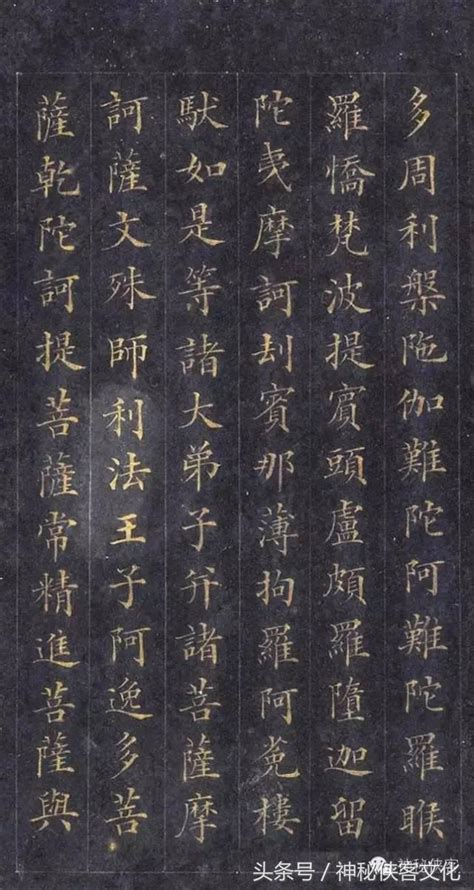 多周利槃陁伽難陀阿難陀羅睺
羅憍梵波提賓頭盧頗羅墮迦留
陀夷摩訶刧賓那薄拘羅阿㝹樓
馱如是等諸大弟子并諸菩薩摩
訶薩文殊師利法王子阿逸多菩
薩乾陀訶提菩薩常精進菩薩與
神秘侠客
头条号／神秘侠客文化